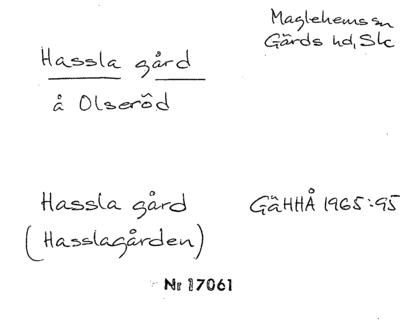 Maglehems sn
Gärds hd, Sk
Hassla gård
å Olseröd
Hassla gård GäHHÅ 1965:95
(Hasslagården)
Nr 17061